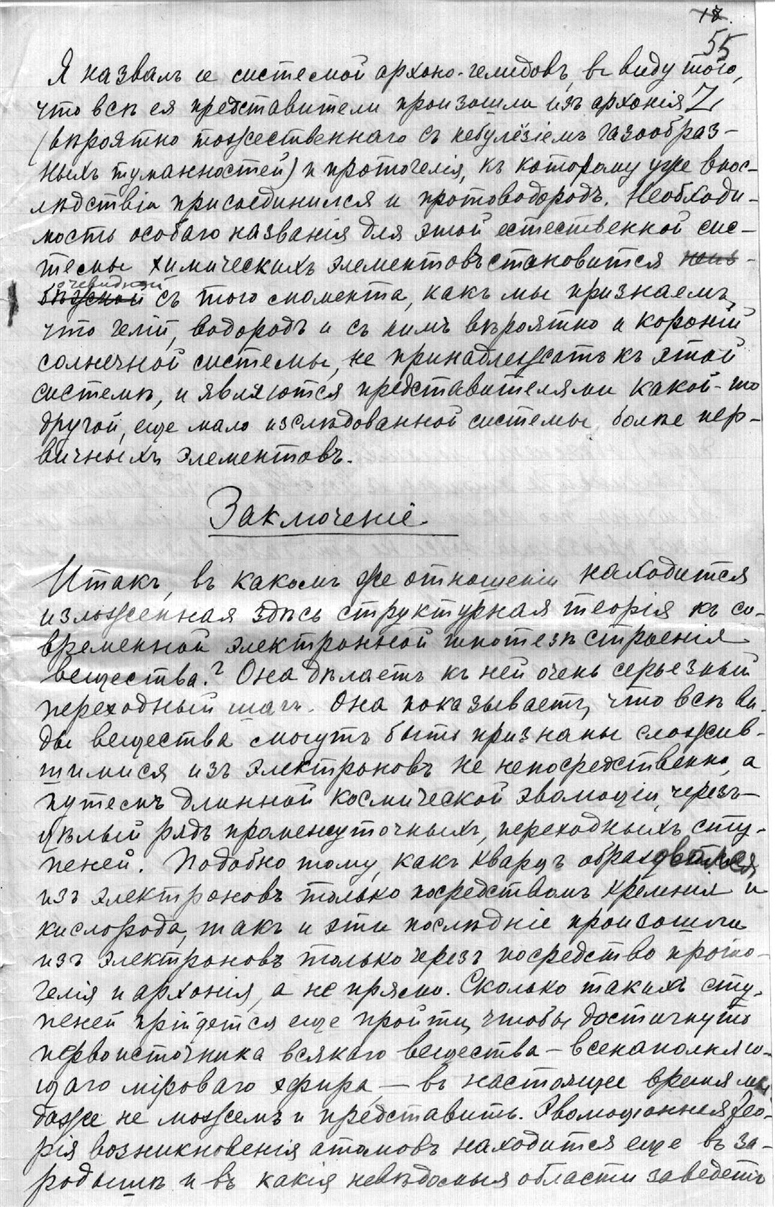 18.
55
Я назвалъ ее системой архоно-гелидовъ, въ виду того,
что всѣ ея представители произошли изъ архонія Z,
(вѣроятно тожественнаго съ небулёзіемъ газообраз-
ныхъ туманностей) и протогелія, къ которому уже впос-
лѣдствіи присоединился и протоводородъ. Необходи-
мость особаго названія для этой естественной сис-
темы химическихъ элементовъ становится
очевидной
съ того момента, какъ мы признаемъ,
что гелій, водородъ и съ нимъ вѣроятно и короній
солнечной системы, не принадлежатъ къ этой
системѣ, и являются представителями какой-то
другой, еще мало изслѣдованной системы, болѣе пер-
вичныхъ элементовъ.
Заключеніе
Итакъ, въ какомъ же отношеніи находится
изложенная здѣсь структурная теорія къ со-
временной электронной гипотезѣ строенія
вещества? Она дѣлаетъ къ ней очень серьезный
переходный шагъ. Она показываетъ, что всѣ ви-
ды вещества могутъ быть признаны сложив-
шимися изъ электроновъ не непосредственно, а
путемъ длинной космической эволюціи, черезъ
цѣлый рядъ промежуточныхъ, переходныхъ сту-
пеней. Подобно тому, какъ кварцъ образовался
изъ электроновъ только посредствомъ кремнія и
кислорода, такъ и эти послѣдніе произошли
изъ электроновъ только черезъ посредство прото-
гелія и архонія, а не прямо. Сколько такихъ сту-
пеней прійдется еще пройти, чтобы достигнуть
первоисточника всякаго вещества – всенаполняю-
щаго мірового эфира, – въ настоящее время мы
даже не можемъ и представить. Эволюціонная тео-
рія возникновенія атомовъ находится еще въ за-
родышѣ и въ какія невѣдомыя области заведетъ